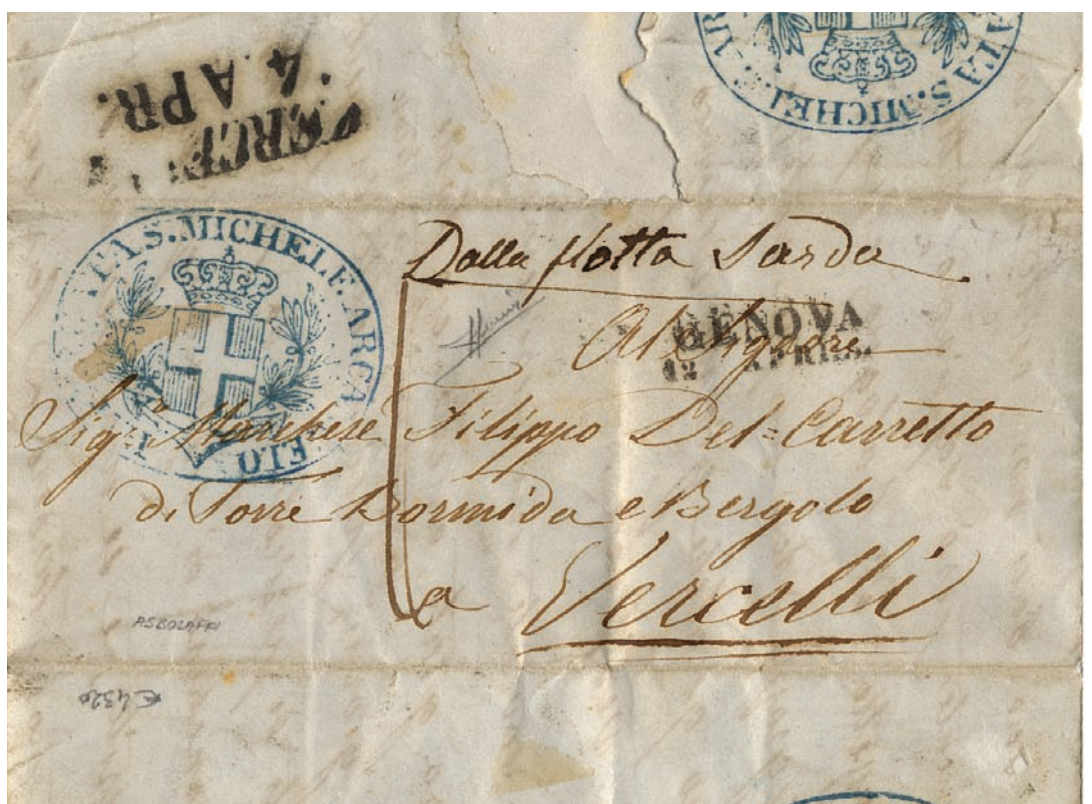 4 APR.
S. MICHELE ARCA
Dalla flotta Sarda
GENOVA
12 APRILE.
Al Signore
Sig.r Marchese Filippo Del=Carretto
di Torre Bormida e Bergolo
a Vercelli
ASBOLAFFI
€ 4320